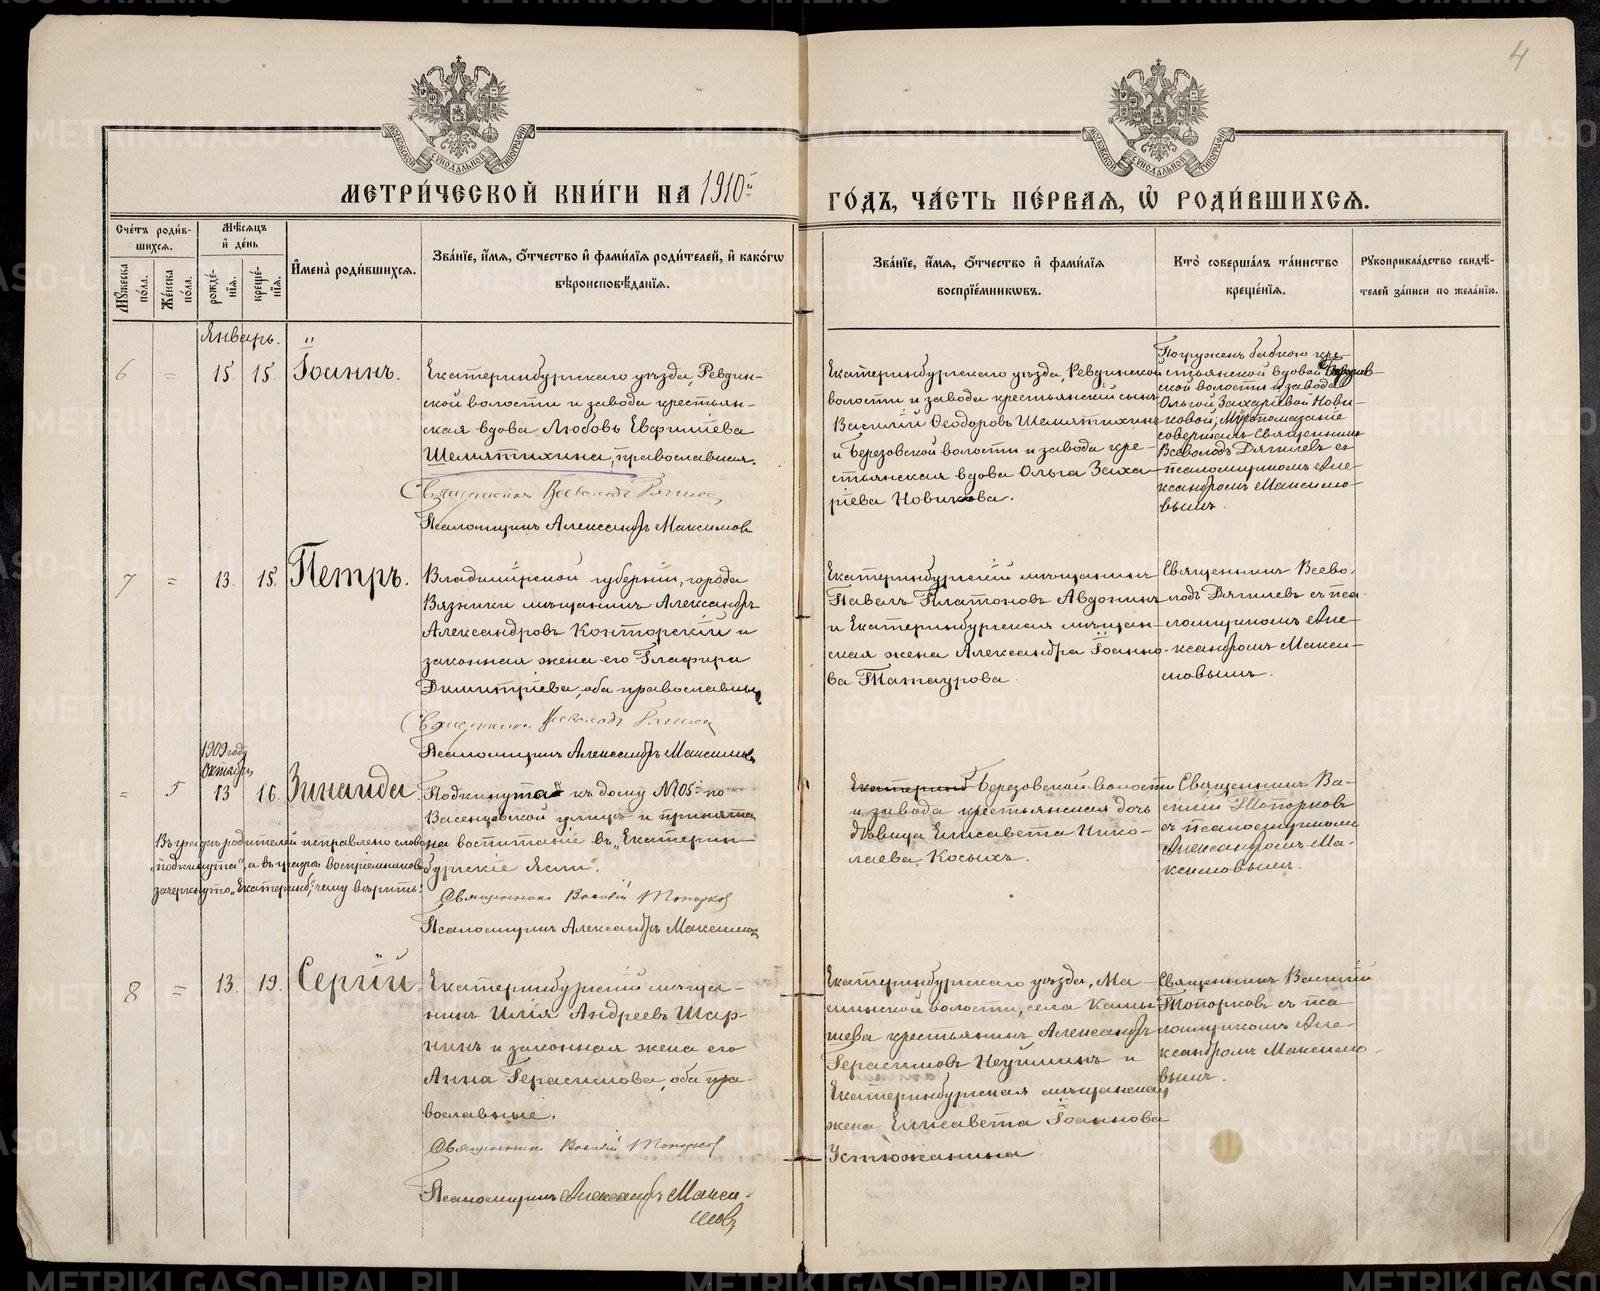 4
МОСКОВСКОЙ СИНОДАЛЬНОЙ ТИПОГРАФІИ
МОСКОВСКОЙ СИНОДАЛЬНОЙ ТИПОГРАФІИ
МЕТРИ́ЧЕСКОЙ КНИ́ГИ НА 1910й
ГО́ДЪ, ЧА́СТЬ ПЕ́РВАѦ, Ѽ РОДИ́ВШИХСѦ.
Сче́тъ роди́в-
шихсѧ.
Мѣ́сѧцъ
и҆ де́нь
Мꙋ́жеска по́ла.
Же́нска по́ла.
рожде́-нїѧ.
креще́-нїѧ.
И҆мена̀ роди́вшихсѧ.
Зва́нїе, и҆́мѧ, ѻ҆́тчество и҆ фами́лїѧ роди́телей, и҆ како́гѡ
вѣроисповѣ́данїѧ.
Зва́нїе, и҆́мѧ, ѻ҆́тчество и҆ фами́лїѧ
воспрїе́мникѡвъ.
Кто̀ соверша́лъ та́инство
креще́нїѧ.
Рꙋкоприкла́дство свидѣ́-
телей за́писи по жела́нїю.
Январь.
6 = 15. 15. Іоаннъ.
Екатеринбургскаго уѣзда, Ревдин-
ской волости и завода крестьян-
ская вдова Любовь Евфиміева
Шемятихина, православная.
Священникъ Всеволодъ Дягилевъ
Псаломщикъ Александръ Максимовъ
Екатеринбургскаго уѣзда, Ревдинской
волости и завода крестьянскій сынъ
Василій Ѳеодоровъ Шемятихинъ
и Березовской волости и завода кре-
стьянская вдова Ольга Заха-
ріева Новикова.
Погруженъ бабкою кре-
стьянской вдовой Березов-
ской волости и завода
Ольгой Захаріевой Нови-
ковой; Мѵропомазаніе
совершалъ Священникъ
Всеволодъ Дягилевъ съ
псаломщикомъ Але-
ксандромъ Максимо-
вымъ.
7 = 13. 15. Петръ.
Владимірской губерніи, города
Вязники мѣщанинъ Александръ
Александровъ Конторскій и
законная жена его Глафира
Димитріева, оба православные.
Священникъ Всеволодъ Дягилевъ
Псаломщикъ Александръ Максимовъ
Екатеринбургскій мѣщанинъ
Павелъ Платоновъ Авдонинъ
и Екатеринбургская мѣщан-
ская жена Александра Іоанно-
ва Татаурова.
Священникъ Всево-
лодъ Дягилевъ съ пса-
ломщикомъ Але-
ксандромъ Макси-
мовымъ.
1909 году
Октябрь
= 5 13 16. Зинаида.
Подкинута къ дому №105 по
Васенцовской улицѣ и принята
на воспитаніе въ „Екатерин
бургскіе Ясли".
Священникъ Василій Топорковъ
Псаломщикъ Александръ Максимовъ
Въ графѣ родителей исправлено слово
„подкинута", а въ графѣ воспріемниковъ
зачеркнуто „Екатеринб", чему вѣрить.
Екатеринб Березовской волости
и завода крестьянская дочь
дѣвица Елисавета Нико-
лаева Косыхъ.
Священникъ Ва-
силій Топорковъ
съ псаломщикомъ
Александромъ Ма-
ксимовымъ.
8 = 13. 19. Сергій.
Екатеринбургскій мѣща-
нинъ Илія Андреевъ Шар-
нинъ и законная жена его
Анна Герасимова, оба пра-
вославные.
Священникъ Василій Топорковъ
Псаломщикъ Александръ Макси-
мовъ
Екатеринбургскаго уѣзда, Ма-
минской волости, села Камы-
шева крестьянинъ Александръ
Герасимовъ Неуйминъ и
Екатеринбургская мѣщанская
жена Елисавета Іоаннова
Устюжанина.
Священникъ Василій
Топорковъ съ пса-
ломщикомъ Але-
ксандромъ Максимо-
вымъ.
METRIKI.GASO-URAL.RU